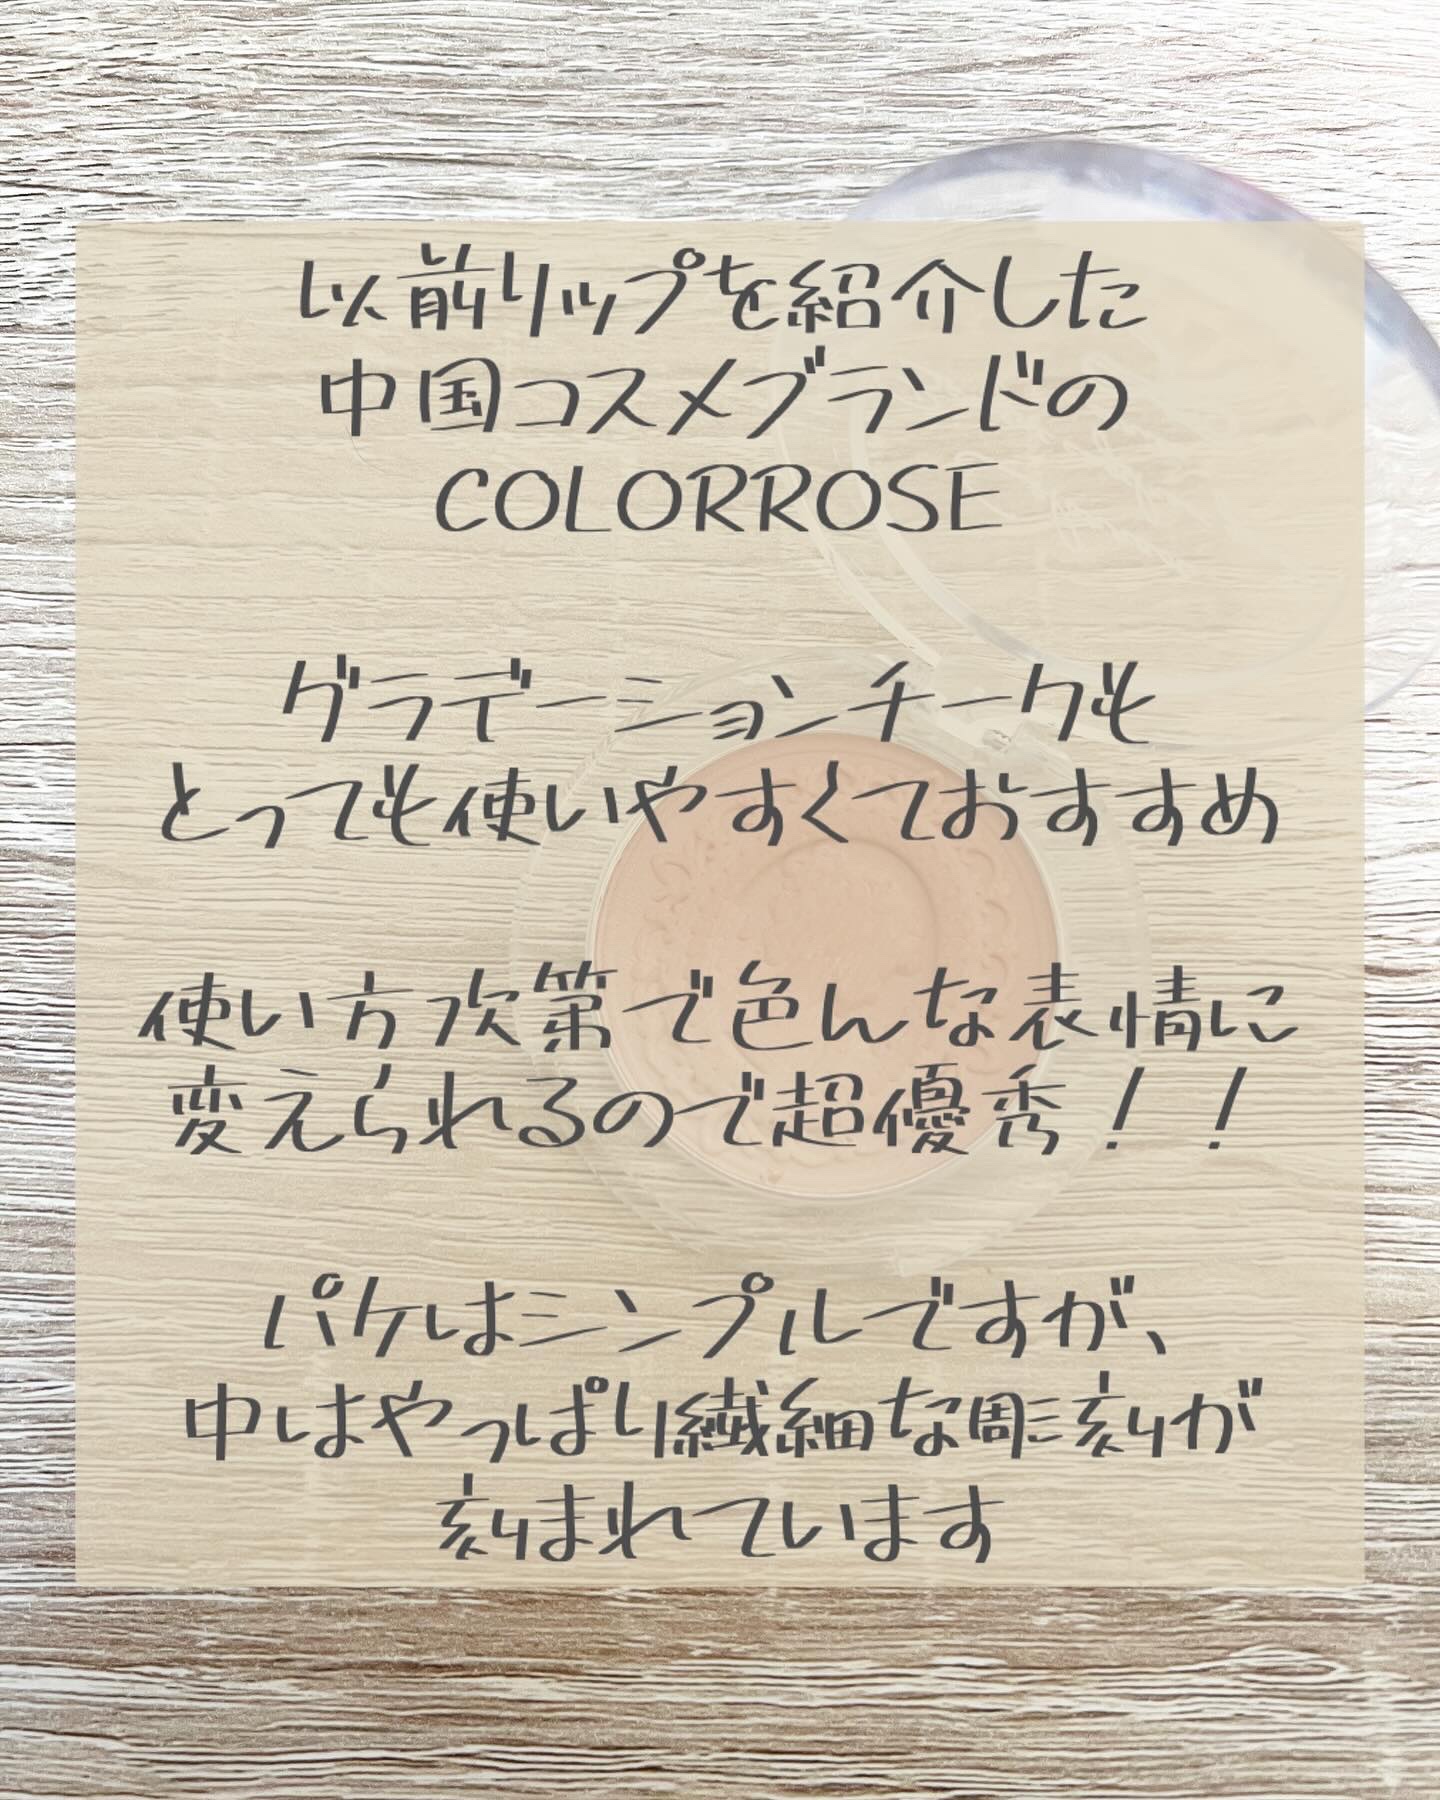 以前リップを紹介した
中国コスメブランドの
COLORROSE
グラデーションチークも
とっても使いやすくておすすめ
使い方次第で色んな表情に
変えられるので超優秀！！
パケはシンプルですが、
中はやっぱり繊細な彫刻が
刻まれています